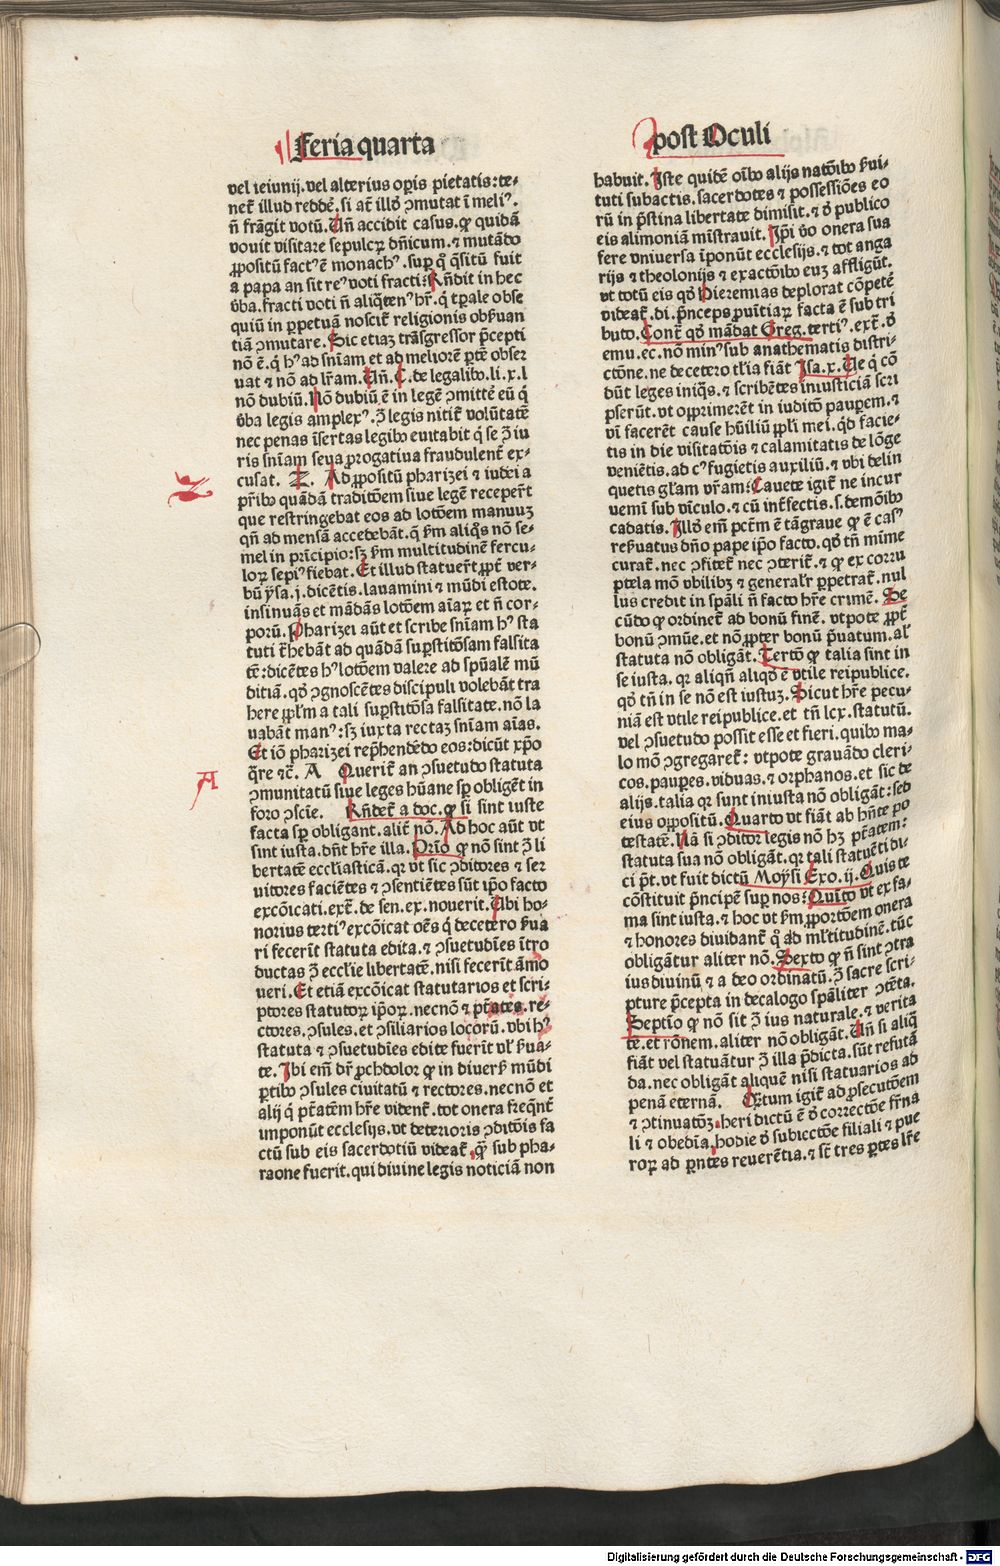 Feria quarta
vel ieiunij. vel alterius oꝑis pietatis: te-
net̄ illud redde̅. si at̄ illꝰ ꝯmutat ī meliꝰ.
n̄ frāgit votū. Un̄ accidit casus. ꝙ quidā
vouit visitare sepulcꝝ dn̄icum. ⁊ mutādo
ꝓpositū factꝰ ē monachꝰ. suꝑ qͦ q̄situ̅ fuit
a papa an sit reꝰ voti fracti: Rn̄dit in hec
v̄ba. fracti voti n̄ aliq̄tenꝰ hr̄. q̇ tꝑale obse
quiū in ꝑpetuā noscit̄ religionis obẜuan
tiā ꝯmutare. Sic etiaꝫ trāsgressor p̄cepti
nō ē. q̇ hꝰ ad sn̄iam et ad meliorē ꝑtē obser
uat ⁊ nō ad lr̄am. Un̄. C. de legalibꝰ. li. x. l
nō dubiū. Nō dubiū ē in legē ꝯmitte̅ eū q̇
v̄ba legis amplexꝰ. ꝯ̄ legis nitit̄ volūtatē
nec penas īsertas legibꝰ euitabit q̇ se ꝯ̄ iu
ris sn̄iam seua ꝓrogatiua fraudulent̄ ex-
cusat. Z. Ad ꝓpositū pharizei ⁊ iudei a
pr̄ibꝰ quādā traditōem siue legē receper̄t
que restringebat eos ad lotōem manuuꝫ
qn̄ ad mensā accedebāt. q̄ ẜm aliq̄s nō se-
mel in pr̄icipio: sꝫ ẜm multitudinē fercu-
loꝝ sepiꝰ fiebat. Et illud statuer̄t ꝓpt̄ ver-
bū ysa. j. dicētis. lauamini ⁊ mūdi estote.
insinuās et mādās lotōem aīaꝝ et n̄ cor-
porū. Pharizei aūt et scribe sn̄iam hꝰ sta
tuti r̄hēbāt ad quādā suꝑstitōsam falsita
tē: dicētes hꝰ lotōem valere ad sp̄ualē mū
ditiā. qꝰ ꝯgnoscētes discipuli volebāt tra
here ꝓpl̄m a tali suꝑstitōsa falsitate. nō la
uabāt manꝰ: sꝫ iuxta rectaꝫ sn̄iam aīas.
Et iō pharizei rep̄hendēdo eos: dicūt xp̄o
q̄re ⁊c̄. A Querit̄ an ꝯsuetudo statuta
ꝯmunitatū siue leges hūane sꝑ obligēt in
foro ꝯscīe. Rn̄det̄ a doc. ꝙ si sint iuste
facta sꝑ obligant. alit̄ nō. Ad hoc aūt vt
sint iusta. dn̄t hr̄e illa. Prīo ꝙ nō sint ꝯ̄ li
bertatē eccl̄iasticā. qꝛ vt sic ꝯditores ⁊ ser
uitores faciētes ⁊ ꝯsentiētes sūt ip̄o facto
excōicati. ext̄. de sen. ex. nouerit. Ubi ho-
norius tertiꝰ excōicat oēs q̇ decetero ẜua
ri fecerīt statuta edita. ⁊ ꝯsuetudīes ītro
ductas ꝯ̄ eccl̄ie libertatē. nisi fecerīt āmo
ueri. Et etiā excōicat statutarios et scri-
ptores statutoꝝ ip̄oꝝ. necnō ⁊ pt̄ates. re-
ctores. ꝯsules. et ꝯsiliarios locorū. vbi hꝰ
statuta ⁊ ꝯsuetudīes edite fuerīt vl̄ ẜua-
te. Ibi em̄ dr̄ ꝓchdolor ꝙ in diuerẜ mūdi
ꝑtibꝰ ꝯsules ciuitatū ⁊ rectores. necnō et
alij q̇ pt̄atēm hr̄e vident̄. tot onera freq̄nt̄
imponūt ecclesijs. vt deterioris ꝯditōis fa
ctū sub eis sacerdotiū videat̄. q̄ꝫ sub pha-
raone fuerit. qui diuine legis noticiā non
post Oculi
habuit. Iste quidē oībꝰ alijs natōibꝰ ẜui-
tuti subactis. sacerdotes ⁊ possessiōes eo
rū in p̄stina libertate dimisit. ⁊ ꝺ̄ publico
eis alimoniā mīstrauit. Ip̄i v̄o onera sua
fere vniuersa īponūt ecclesijs. ⁊ tot anga
rijs ⁊ theolonijs ⁊ exactōibꝰ euꝫ affligūt.
vt totū eis qꝰ Hieremias deplorat cōpetē
videat̄. di. p̄nceps ꝓuītiaꝝ facta ē sub tri
buto. Cont̄ qꝰ mādat Greg. tertiꝰ. ext̄. ꝺ̄
emu. ec. nō minꝰ sub anathematis distri-
ctōne. ne decetero tl̄ia fiāt Isa. x. Ue q̇ cō
dūt leges iniq̄s. ⁊ scribētes iniusticiā scri
pserūt. vt opprimerēt in iuditō pauꝑem. ⁊
vī facerēt cause hūiliū ppl̄i mei. qͥd facie-
tis in die visitatōis ⁊ calamitatis de lōge
veniētis. ad cꝰ fugietis auxiliū. ⁊ vbi delin
quetis gl̄am vr̄am: Cauete igit̄ ne incur
uemī sub vīculo. ⁊ cū int̄fectis. s. demōibꝰ
cadatis. Illꝰ em̄ pct̄m ē tāgraue ꝙ ē casꝰ
reẜuatus dn̄o pape ip̄o facto. qꝰ tn̄ mīme
curat̄. nec ꝯfitet̄ nec ꝯterit̄. ⁊ ꝙ ex corru
ptela mō vbilibꝫ ⁊ general̄r ꝑpetrat̄. nul
lus credit in sp̄ali n̄ facto hr̄e crimē. Se
cūdo ꝙ ordinet̄ ad bonū finē. vtpote ꝓpt̄
bonū ꝯmūe. et nō ꝓpter bonū p̄uatum. al̄
statuta nō obligāt. Tertō ꝙ talia sint in
se iusta. qꝛ aliqn̄ aliqꝰ ē vtile reipublice.
qꝰ tn̄ in se nō est iustuꝫ. Sicut hr̄e pecu-
niā est vtile reipublice. et tn̄ lex. statutū.
vel ꝯsuetudo possit esse et fieri. quibꝰ ma-
lo mō ꝯgregaret̄: vtpote grauādo cleri-
cos. pauꝑes. viduas. ⁊ orphanos. et sic de
alijs. talia qꝛ sunt iniusta nō obligāt: sed
eius oppositū. Quarto vt fiāt ab hn̄te po
testatē. Nā si ꝯditor legis nō hꝫ pt̄atem:
statuta sua nō obligāt. qꝛ tali statuēti di-
ci p̄t. vt fuit dictū Moysi Exo. ij. Quis te
cōstituit p̄ncipē suꝑ nos: Quīto vt ex fa-
ma sint iusta. ⁊ hoc vt ẜm ꝓportōem onera
⁊ honores diuidant̄ qͦ ad ml̄titudinē. tūc
obligātur aliter nō. Sexto ꝙ n̄ sint ꝯtra
ius diuinū ⁊ a deo ordinatū. ꝯ̄ sacre scri-
pture p̄cepta in decalogo sp̄aliter ꝯtēta.
Septīo ꝙ nō sit ꝯ̄ ius naturale. ⁊ verita
te. et rōnem. aliter nō obligāt. Un̄ si aliq̄
fiāt vel statuātur ꝯ̄ illa p̄dicta. sūt refutā
da. nec obligāt aliquē nisi statuarios ad
penā eternā. Qͣrtum igit̄ ad ꝓsecutōem
⁊ ꝯtinuatōꝫ. heri dictū ē ꝺ̄ correctōe fr̄na
li ⁊ obediā. hodie ꝺ̄ subiectōe filiali ⁊ pue
roꝝ ad ꝑntes reuerētia. ⁊ st̄ tres ꝑtes lr̄e
Z
A
Digitalisierung gefördert durch die Deutsche Forschungsgemeinschaft - DFG